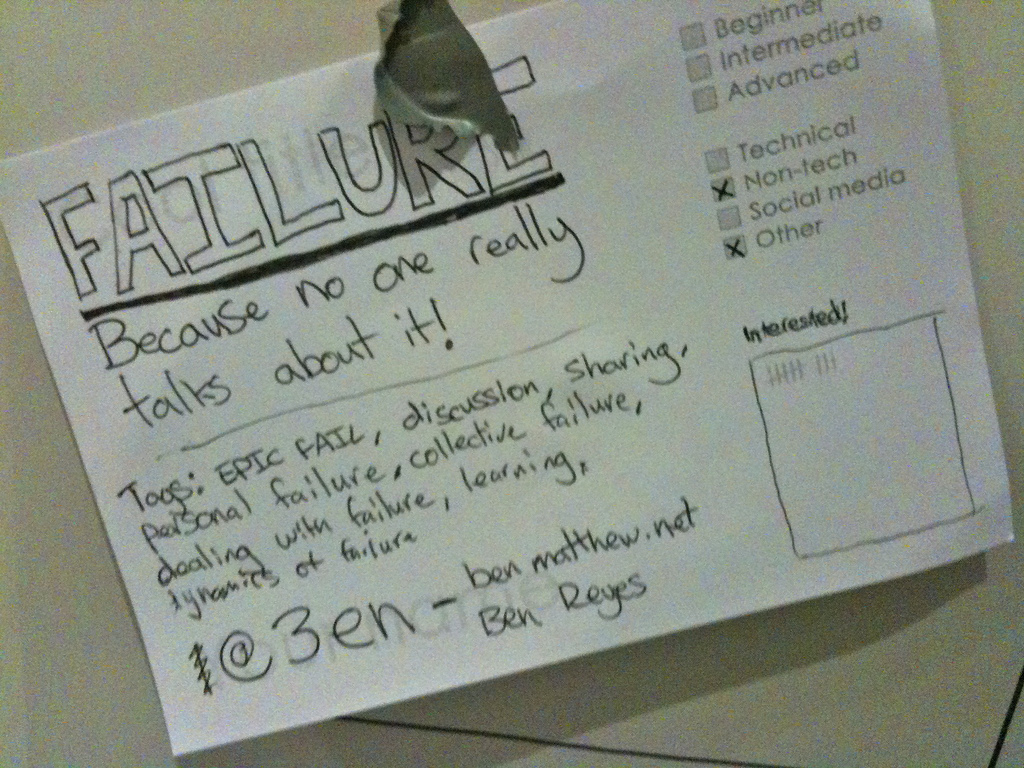 FAILURE
Because no one really
talks about it!
Tags: EPIC FAIL, discussion, sharing,
personal failure, collective failure,
dealing with failure, learning,
dynamics of failure
@Ben - ben matthew.net
Ben Reyes
Beginner
Intermediate
Advanced
Technical
Non-tech
Social media
Other
Interested!